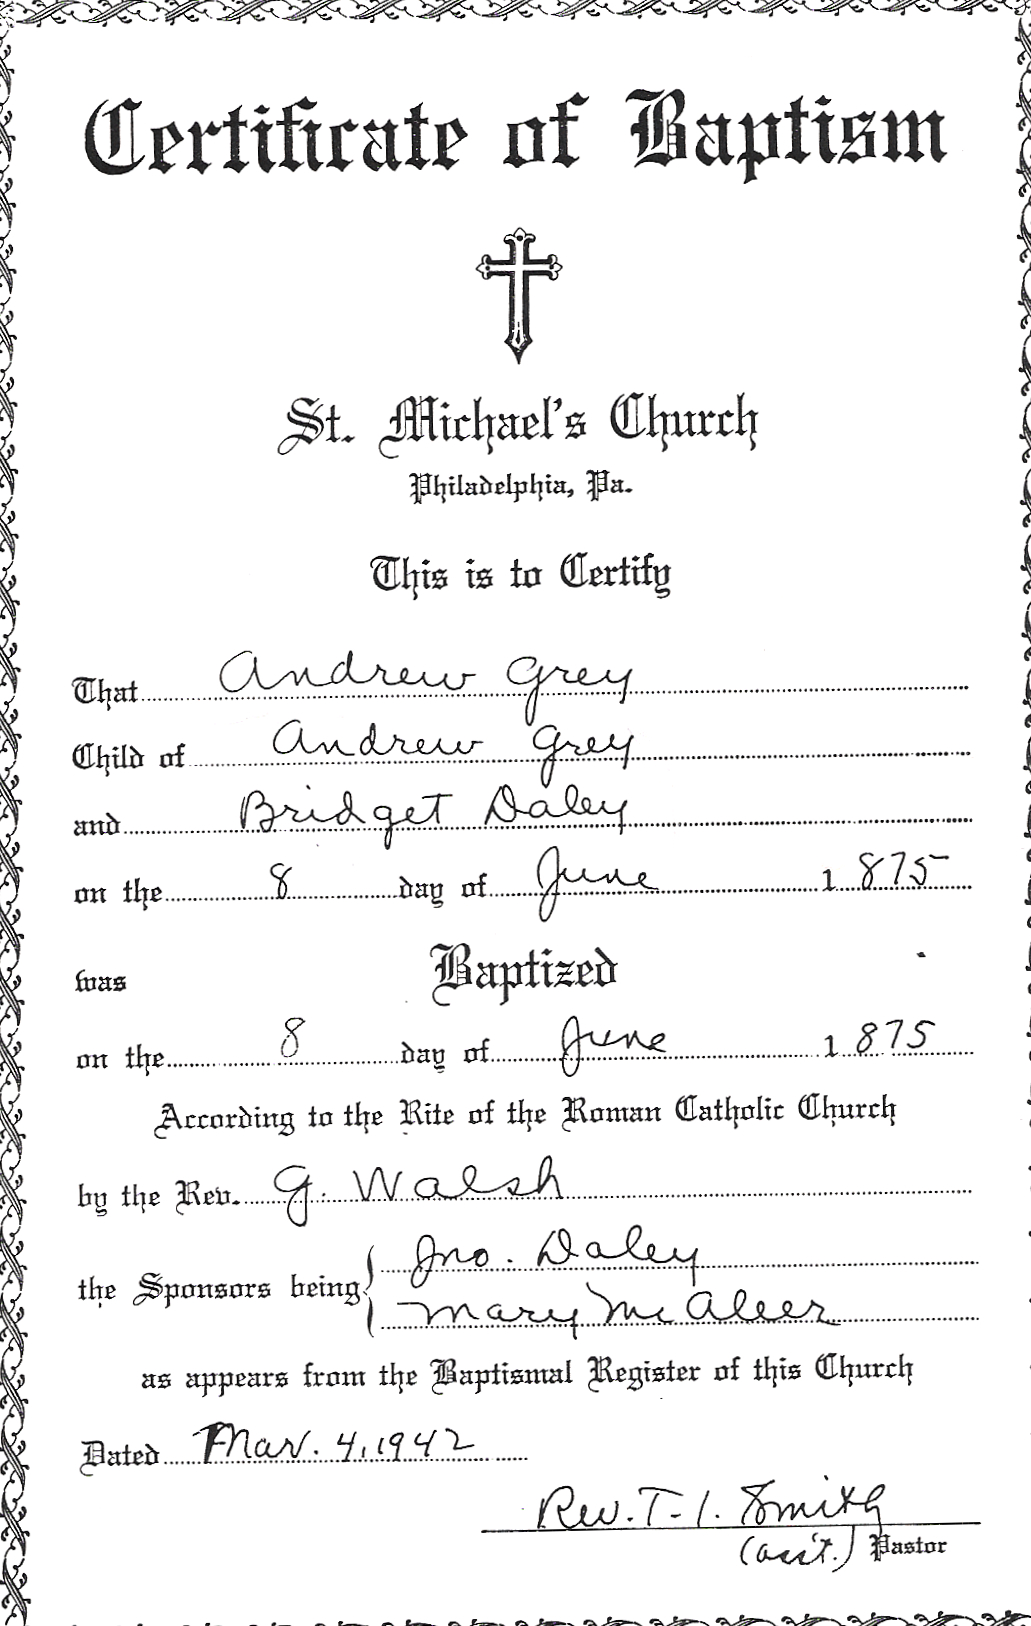 Certificate of Baptism
St. Michael's Church
Philadelphia, Pa.
This is to Certify
That Andrew Grey
Child of Andrew Grey
and Bridget Daley
on the 8 day of June 1875
was Baptized
on the 8 day of June 1875
According to the Rite of the Roman Catholic Church
by the Rev. G. Walsh
the Sponsors being { Jno. Daley
Mary McAleer
as appears from the Baptismal Register of this Church
Dated Mar. 4, 1942
Rev. T. I. Smith
(ass't.) Pastor